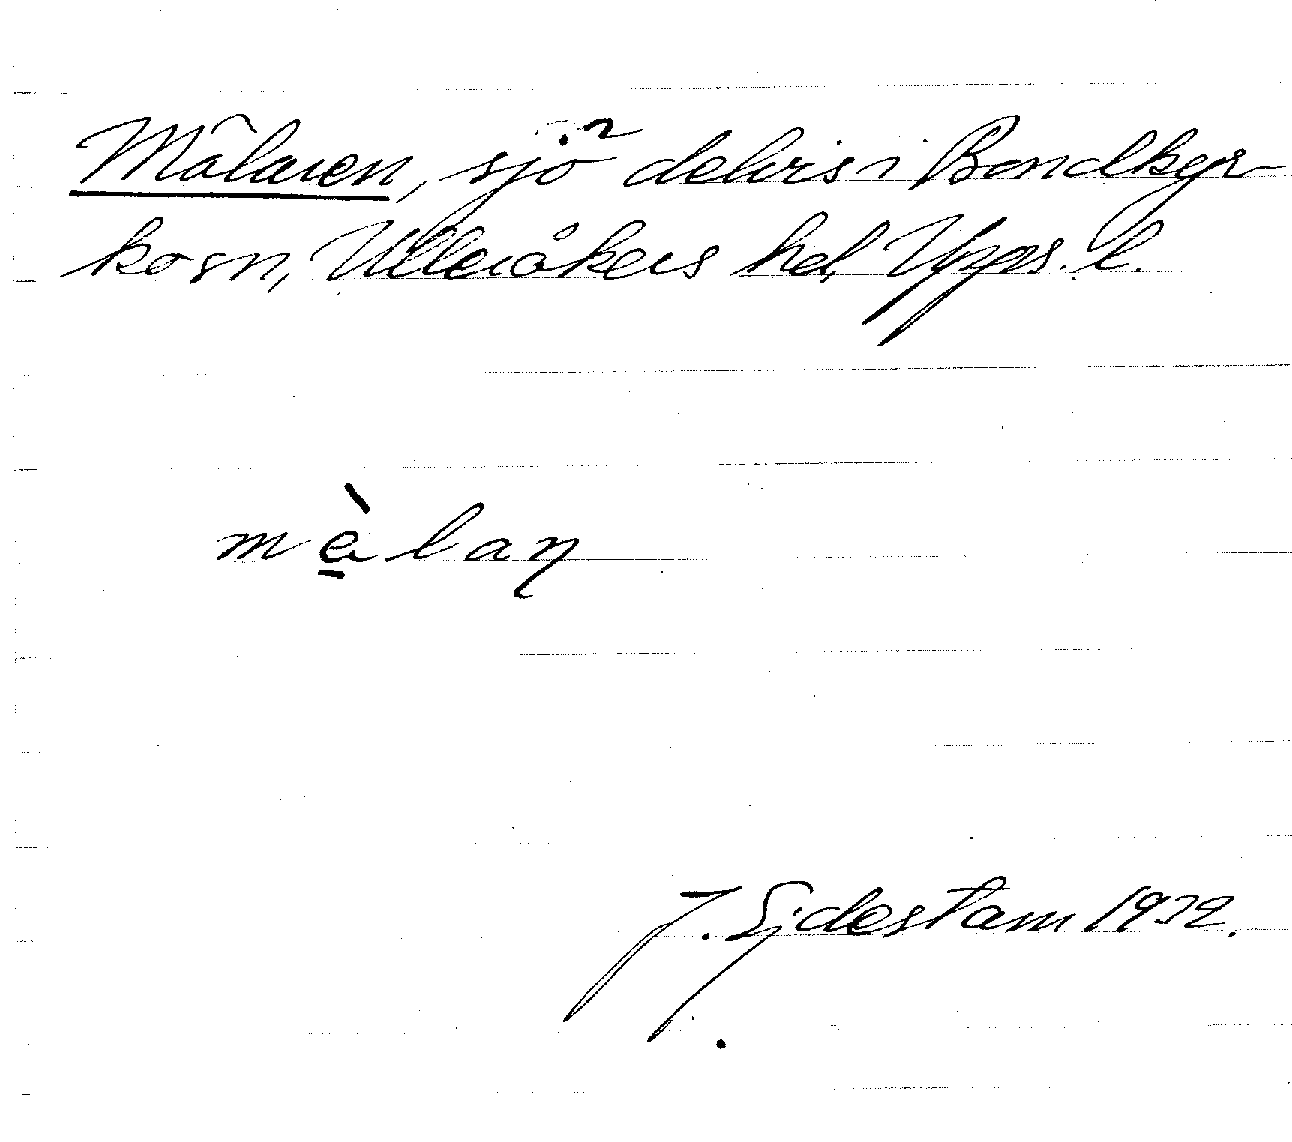 Mälaren, sjö delvis i Bondkyr-
ko sn, Ulleråkers hd, Upps. l.
mèlaŋ
J. Sjdestam 1932.